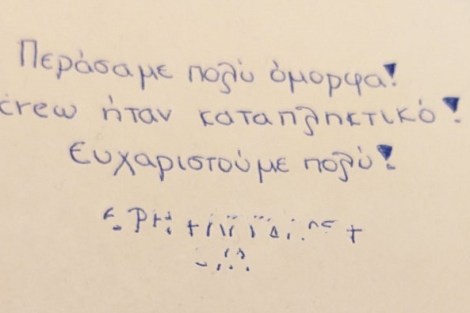 Περάσαμε πολύ όμορφα!
crew ήταν καταπληκτικό!
Ευχαριστούμε πολύ!